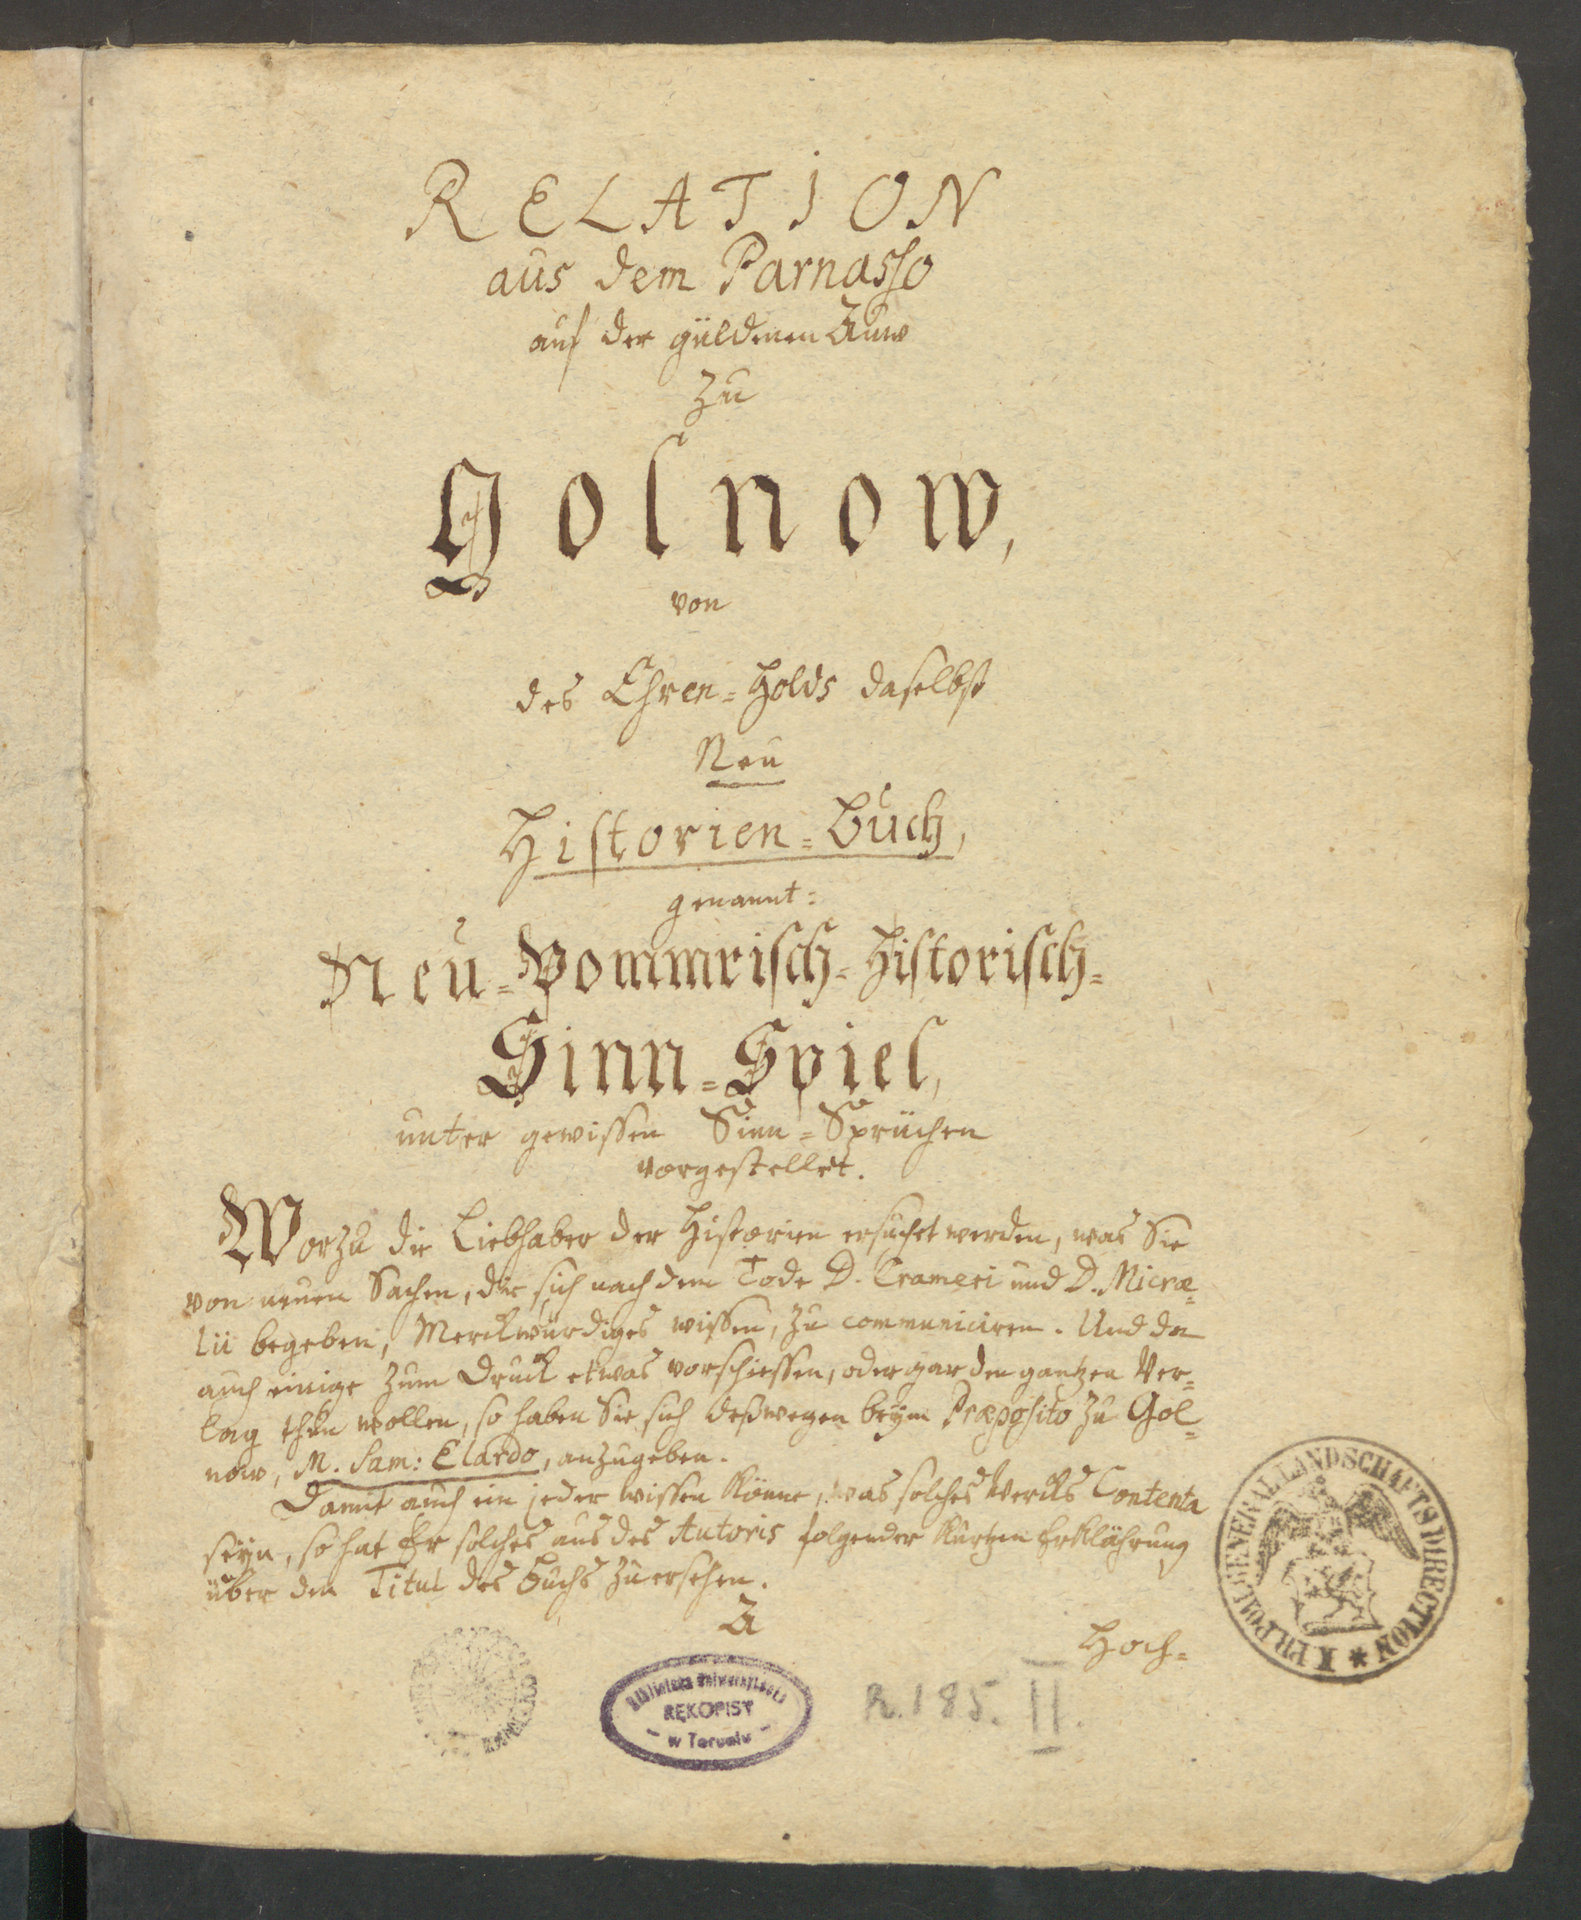 RELATION
aus dem Parnasso
auf der güldenen Auw
zu
Golnow,
von
des Ehren=Holds daselbst
Neu
Historien=Buch,
genannt:
Neu=Pommrisch=Historisch=
Sinn=Spiel,
unter gewissen Sinn=Sprüchen
vorgestellet.
Worzu die Liebhaber der Historien ersuchet werden, was Sie
von neuen Sachen, die sich nach dem Tode D. Crameri und D. Micræ=
lii begeben, Merckwürdiges wissen, zu communiciren. Und da
auch einige zum Druck etwas vorschiessen, oder gar den gantzen Ver=
lag thun wollen, so haben Sie sich deßwegen beym Præposito zu Gol=
now, M. Sam: Elardo, anzugeben.
Damit auch ein jeder wissen könne, was solches Wercks Contenta
seyn, so hat Er solches aus des Autoris folgender kurtzen Erklährung
über den Titul des Buchs zu ersehen.
A
Hoch=
K. PR. POM. GENERAL LANDSCHAFTS DIRECTION *
Biblioteka Uniwersytecka
RĘKOPISY
w Toruniu
R. 185. II.